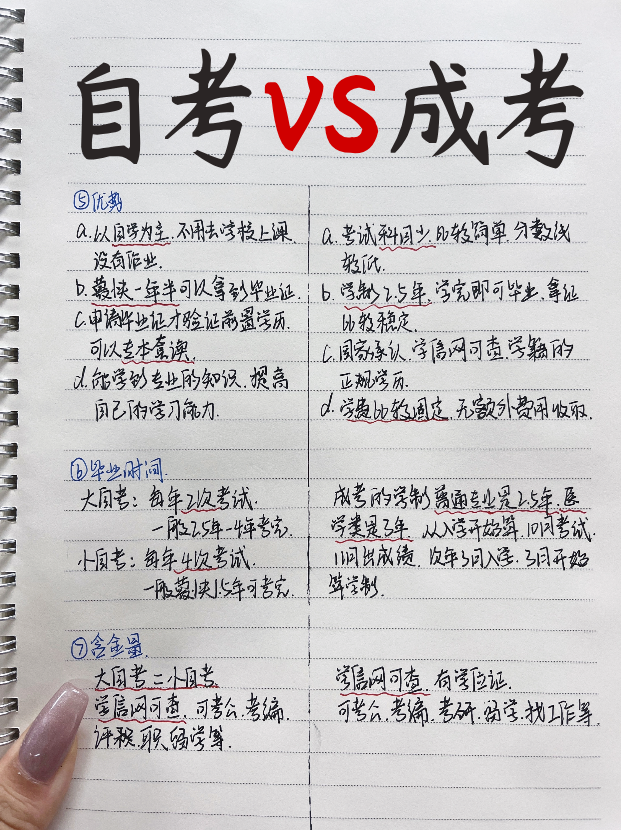 自考VS成考
⑤优势
a.以自学为主.不用去学校上课.
没有作业.
b.最快一年半可以拿到毕业证.
c.申请毕业证才验证前置学历.
可以专本套读.
d.能学到专业的知识.提高
自己的学习能力.
a.考试科目少.比较简单.分数线
较低.
b.学制2.5年.学完即可毕业.拿证
比较稳定.
c.国家承认.学信网可查.学籍的
正规学历.
d.学费比较固定.无额外费用收取.
⑥毕业时间.
大自考：每年2次考试.
一般2.5年-4年考完.
小自考：每年4次考试.
一般最快1.5年可考完.
成考的学制普通专业是2.5年.医
学类是3年.从入学开始算.10月考试.
11月出成绩.次年3月入学.3月开始
算学制.
⑦含金量.
大自考=小自考.
学信网可查.可考公.考编.
评职.留学等.
学信网可查.有学位证.
可考公.考编.考研.留学.找工作等.